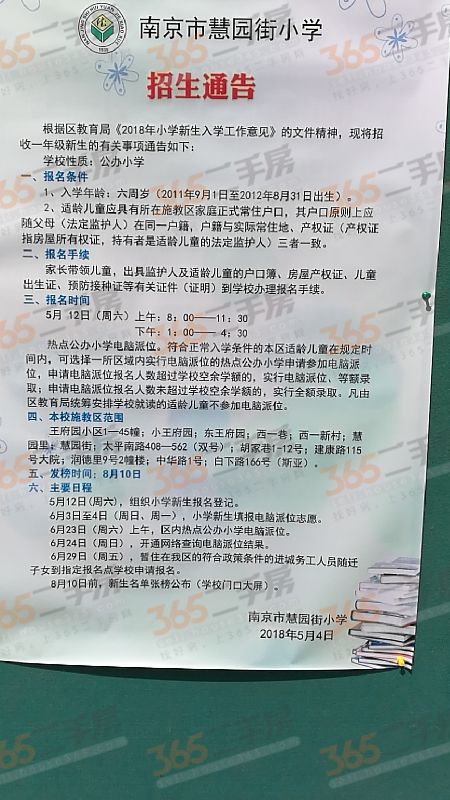 南京市慧园街小学
招生通告
根据区教育局《2018年小学新生入学工作意见》的文件精神，现将招
收一年级新生的有关事项通告如下：
学校性质：公办小学
一、报名条件
1、入学年龄：六周岁（2011年9月1日至2012年8月31日出生）。
2、适龄儿童应具有所在施教区家庭正式常住户口，其户口原则上应
随父母（法定监护人）在同一户籍，户籍与实际常住地、产权证（产权证
指房屋所有权证，持有者是适龄儿童的法定监护人）三者一致。
二、报名手续
家长带领儿童，出具监护人及适龄儿童的户口簿、房屋产权证、儿童
出生证、预防接种证等有关证件（证明）到学校办理报名手续。
三、报名时间
5月 12日（周六）上午：8：00——11：30
下午：1：00—— 4：30
热点公办小学电脑派位。符合正常入学条件的本区适龄儿童在规定时
间内，可选择一所区域内实行电脑派位的热点公办小学申请参加电脑派
位，申请电脑派位报名人数超过学校空余学额的，实行电脑派位、等额录
取；申请电脑派位报名人数未超过学校空余学额的，实行全额录取。凡由
区教育局统筹安排学校就读的适龄儿童不参加电脑派位。
四、本校施教区范围
王府园小区1—45幢；小王府园；东王府园；西一巷；西一新村；慧
园里；慧园街；太平南路408—562（双号）；胡家巷1-12号；建康路115
号大院；润德里9号2幢楼；中华路1号；白下路166号（斯亚）。
五、发榜时间：8月10日
六、主要日程
5月12日（周六），组织小学新生报名登记。
6月3日至4日（周日、周一），小学新生填报电脑派位志愿。
6月23日（周六）上午，区内热点公办小学电脑派位。
6月24日（周日），开通网络查询电脑派位结果。
6月29日（周五），暂住在我区的符合政策条件的进城务工人员随迁
子女到指定报名点学校申请报名。
8月10日前，新生名单张榜公布（学校门口大屏）。
南京市慧园街小学
2018年5月4日
365二手房